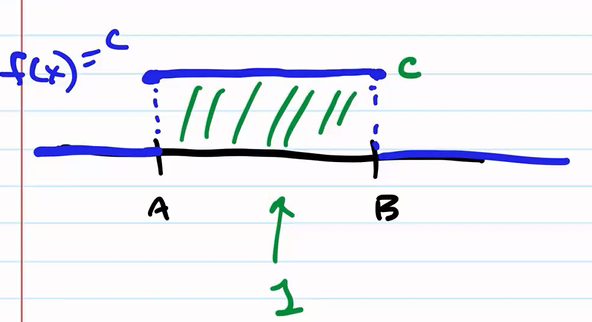 f(x) = c
c
A B
1